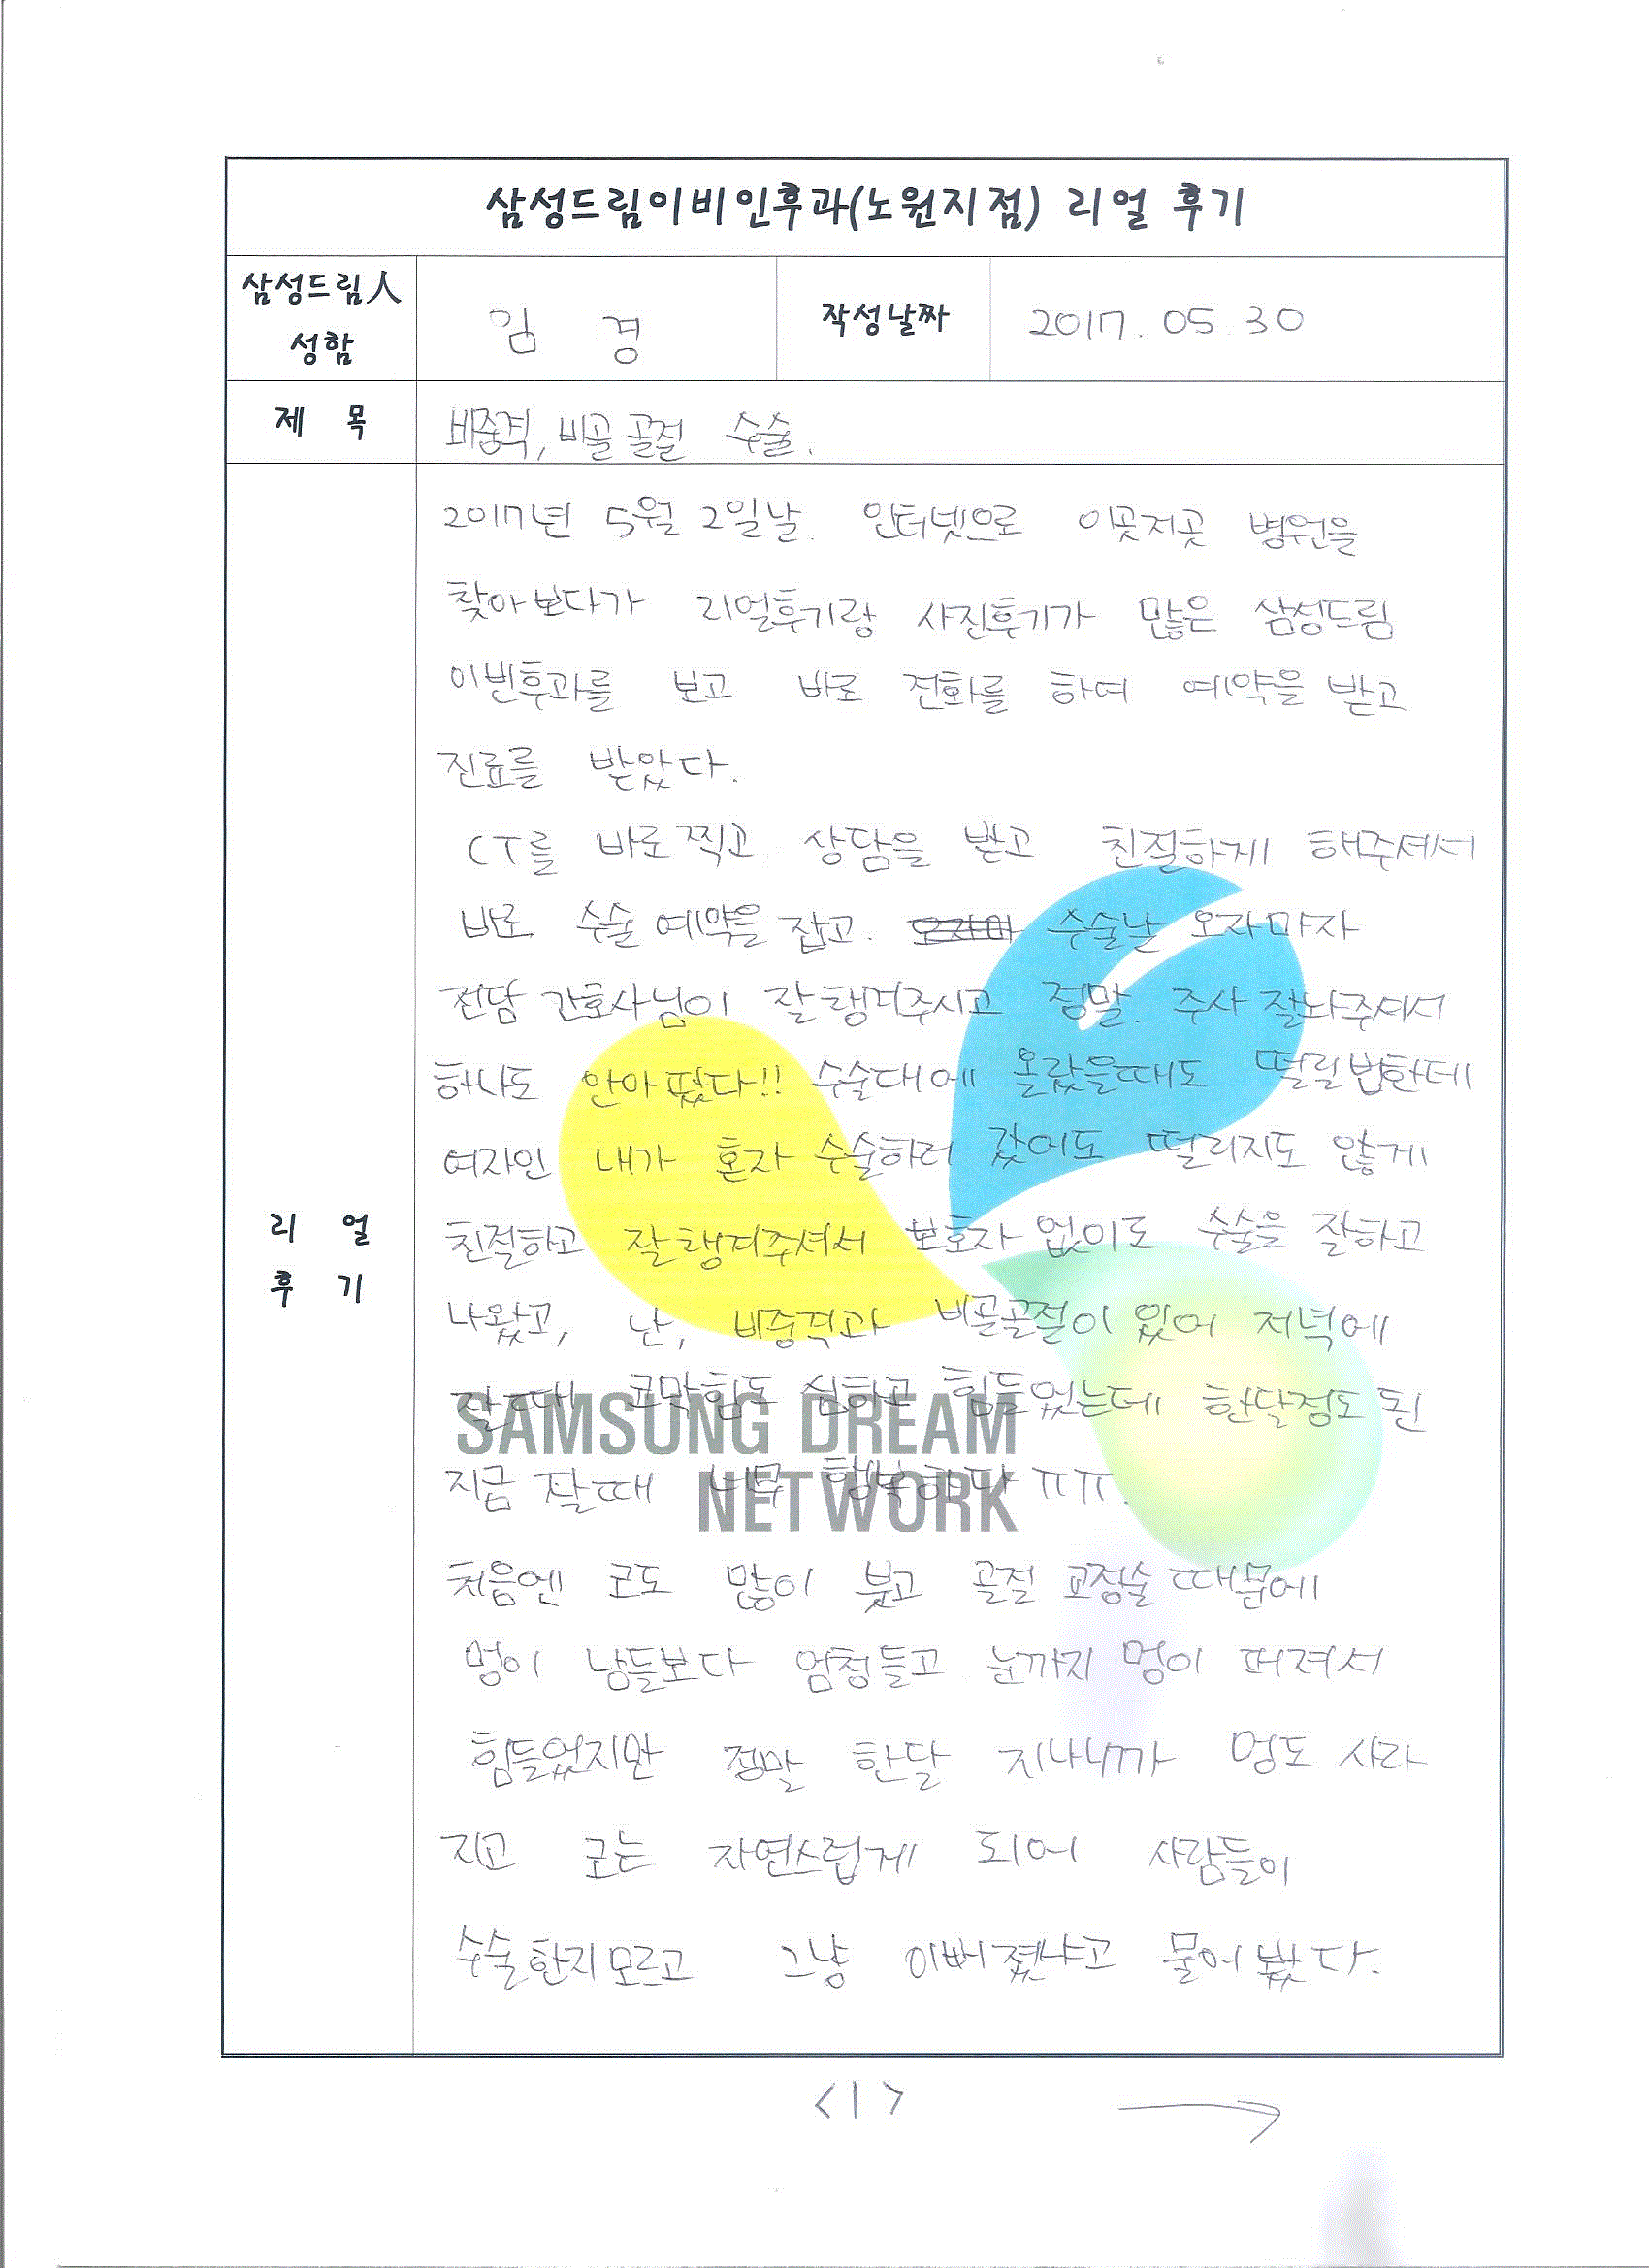 삼성드림이비인후과(노원지점) 리얼 후기
삼성드림人
성함
김 경
작성날짜
2017. 05. 30
제 목
비중격, 비골 골절 수술.
2017년 5월 2일날. 인터넷으로 이곳저곳 병원을
찾아보다가 리얼후기랑 사진후기가 많은 삼성드림
이빈후과를 보고 바로 전화를 하여 예약을 받고
진료를 받았다.
CT를 바로 찍고 상담을 받고 친절하게 해주셔서
바로 수술 예약을 잡고. 수술날 오자마자
전담 간호사님이 잘 챙겨주시고 정말. 주사 잘놔주셔서
하나도 안아팠다!! 수술대에 올랐을때도 떨릴법한데
여자인 내가 혼자 수술하러 갔어도 떨리지도 않게
친절하고 잘챙겨주셔서 보호자 없이도 수술을 잘하고
나왔고, 난, 비중격과 비골골절이 있어 저녁에
잘때 코막힘도 심하고 힘들었는데 한달정도 된
지금 잘때 너무 행복하다 ㅠㅠ.
처음엔 코도 많이 붓고 골절 교정술 때문에
멍이 남들보다 엄청들고 눈까지 멍이 퍼져서
힘들었지만 정말 한달 지나니까 멍도 사라
지고 코는 자연스럽게 되어 사람들이
수술한지모르고 그냥 이뻐졌냐고 물어봤다.
리 얼
후 기
SAMSUNG DREAM
NETWORK
<1> →